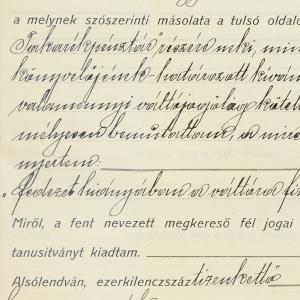 a melynek szószerinti másolata a tulsó oldalo
Takarékpénztár" részére neki, min
könyvelőjének határozott kíván
valamennyi váltójogilag kötele
mélyesen bemutattam, a mire
nyertem:
„fedezet hiányában a váltóra fiz
Miről, a fent nevezett megkereső fél jogai
tanusitványt kiadtam.
Alsólendván, ezerkilenczszáztizenkettő